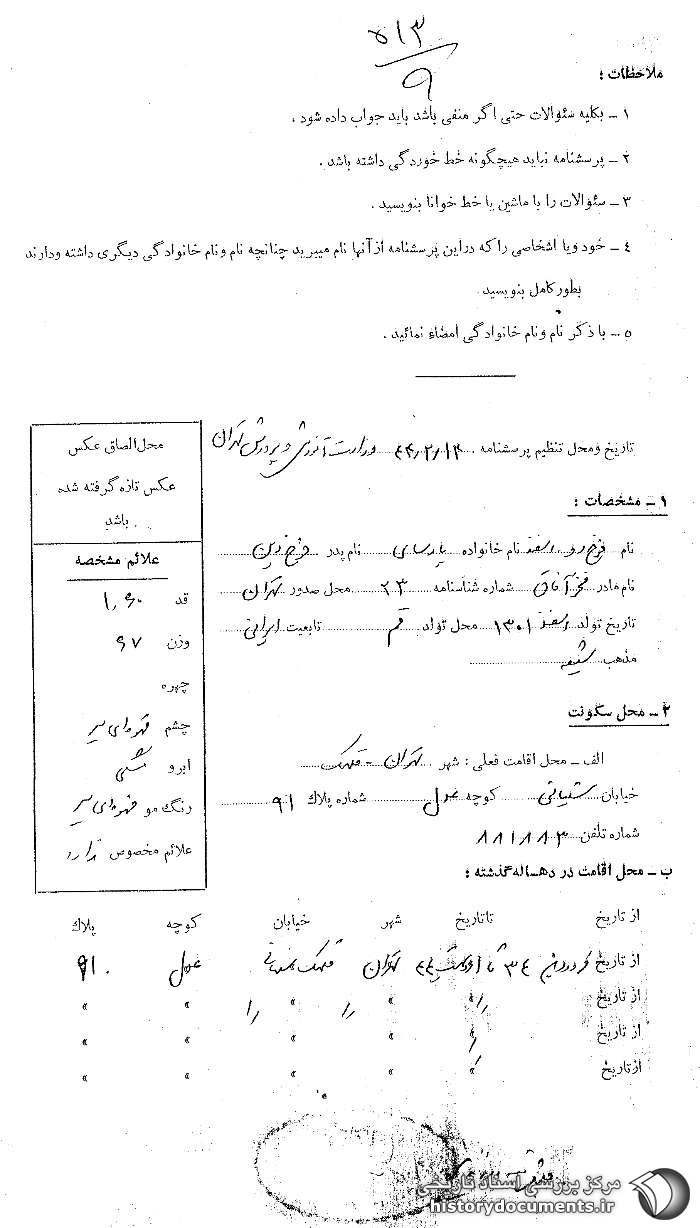 ۵۱۳
۹
ملاحظات :
۱ ــ بکلیه سئوالات حتی اگر منفی باشد باید جواب داده شود .
۲ ــ پرسشنامه نباید هیچگونه خط خوردگی داشته باشد .
۳ ــ سئوالات را با ماشین یا خط خوانا بنویسید .
۴ ــ خود ویا اشخاصی را که دراین پرسشنامه ازآنها نام میبرید چنانچه نام ونام خانوادگی دیگری داشته ودارند
بطورکامل بنویسید
۵ ــ با ذکر نام ونام خانوادگی امضاء نمائید .
تاریخ ومحل تنظیم پرسشنامه ۴۴/۲/۱۲ وزارت آموزش و پرورش تهران
۱ ــ مشخصات :
نام فرخ رو نام خانواده پارسای نام پدر فرخ دین
نام مادر فخر آفاق شماره شناسنامه ۲۳ محل صدور تهران
تاریخ تولد اسفند ۱۳۰۱ محل تولد قم تابعیت ایرانی
مذهب شیعه
محل الصاق عکس
عکس تازه گرفته شده
باشد
علائم مشخصه
قد ۱,۶۰
وزن ۶۷
چهره
چشم قهوه‌ای سیر
ابرو مشکی
رنگ مو قهوه‌ای سیر
علائم مخصوص ندارد
۲ ــ محل سکونت
الف ــ محل اقامت فعلی : شهر تهران - قلهک
خیابان کوچه شماره پلاک ۹۱
شماره تلفن ۸۸۱۸۸۳
ب ــ محل اقامت در دهساله گذشته :
از تاریخ تا تاریخ شهر خیابان کوچه پلاک
از تاریخ فروردین ۳۴ تا تهران قلهک ۹۱
از تاریخ " " " " "
از تاریخ " " " " "
از تاریخ " " " " "
مرکز بررسی اسناد تاریخی
historydocuments.ir